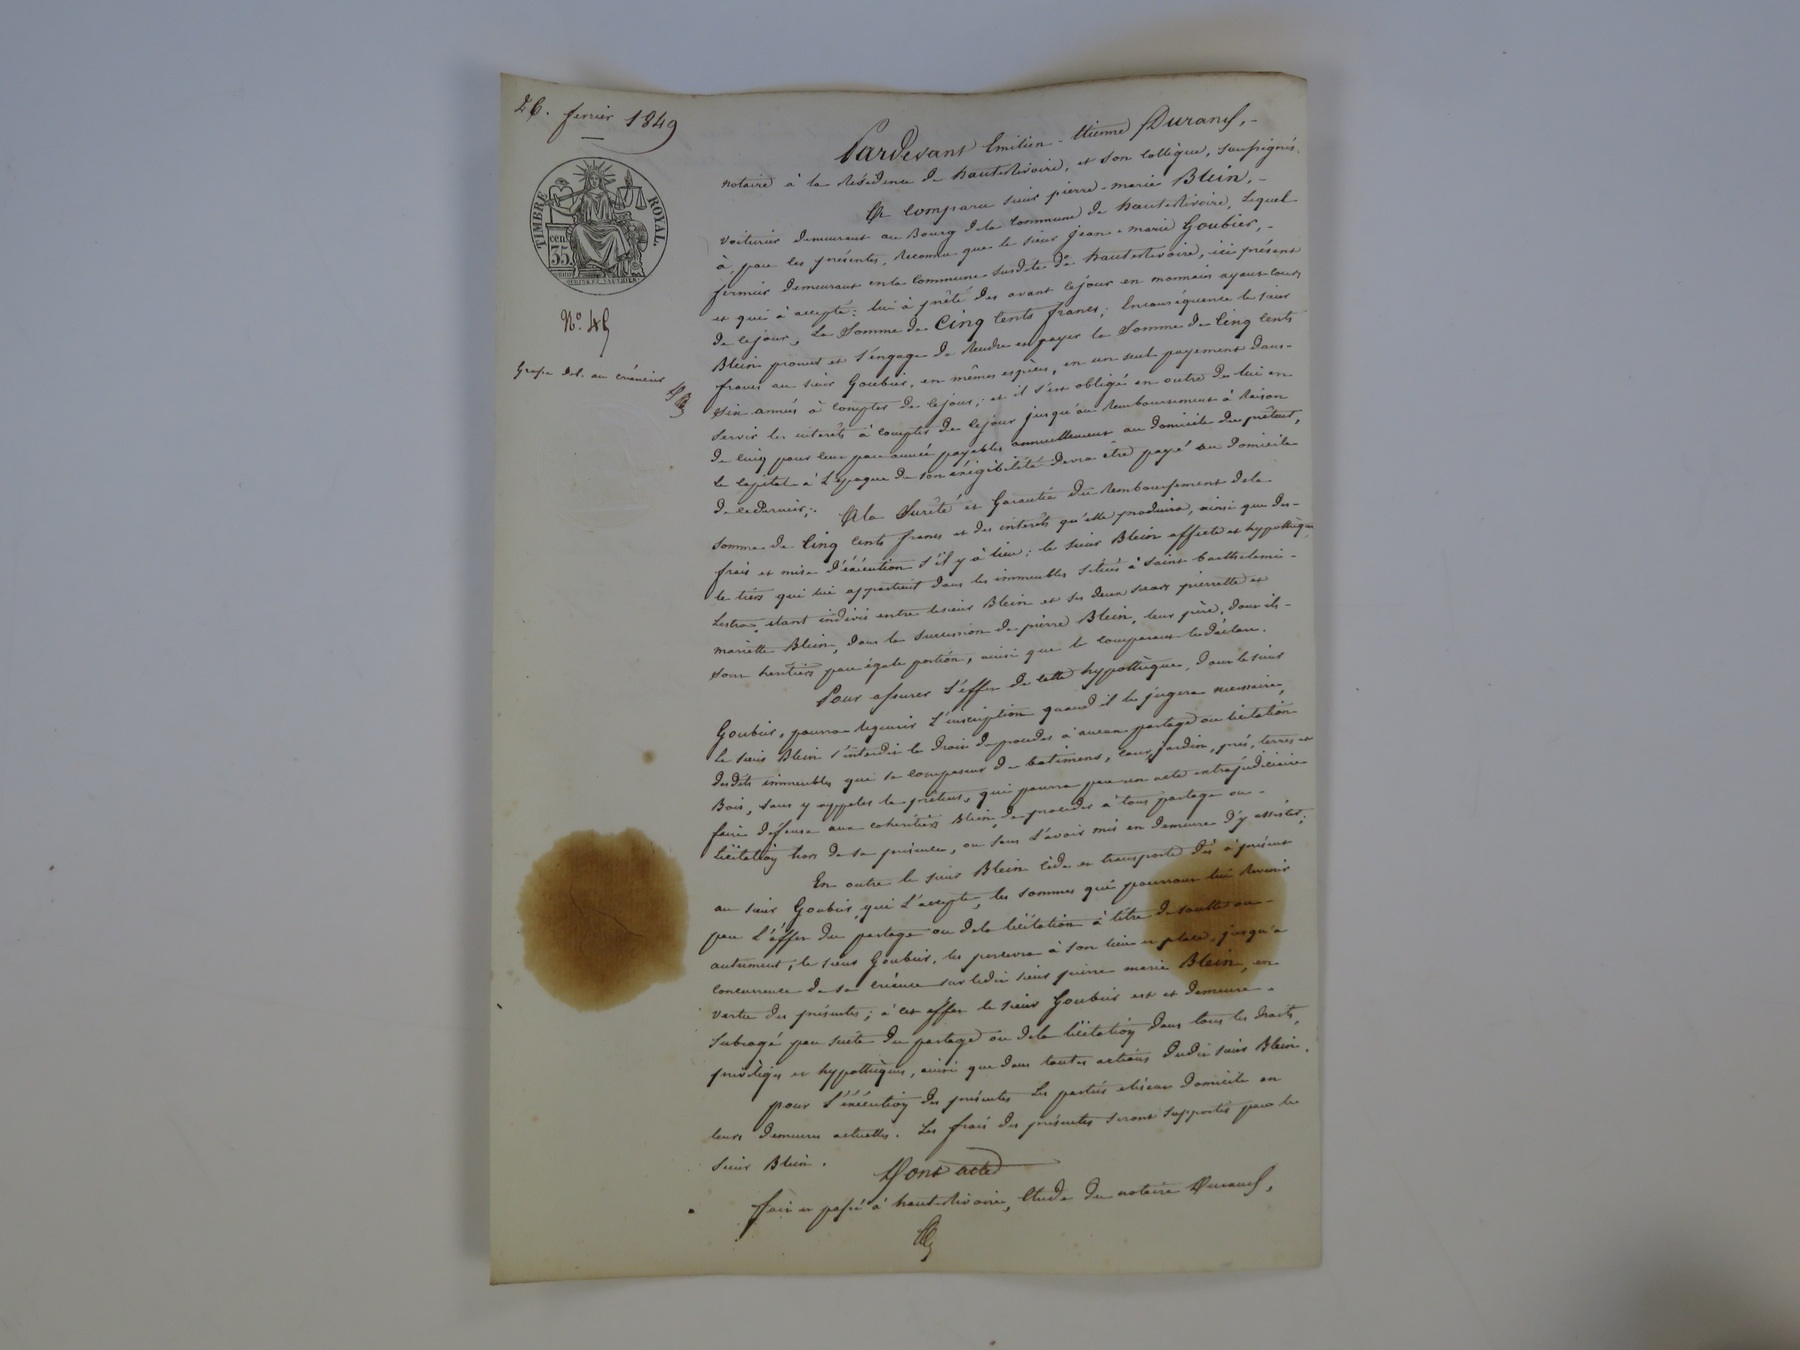 26. fevrier 1849
TIMBRE ROYAL.
cen. 35.
N.° 45
Grosse dél. au créancier
Pardevant Emilien - Etienne Durand, -
notaire à la Résidence de hauterivoire, et son collègue, soussignés.
A comparu sieur pierre - marie Blein, -
voiturier demeurant au Bourg dela Commune de hauterivoire, Lequel
à, par les présentes, Reconnu que le sieur jean - marie Goubier, -
fermier demeurant en la Commune susdite de hauterivoire, ici présent
et qui à accepté: lui à prêté dès avant cejour en monnaies ayant cours
de cejour, La Somme de Cinq Cents francs; Enconséquence le sieur
Blein promet et s'engage de Rendre et payer la Somme de Cinq Cents
francs au sieur Goubier, en mêmes espèces, en un seul payement dans -
six années à compter de cejour; et il s'est obligé en outre de lui en
servir les intérêts à compter de cejour jusqu'au Remboursement à Raison
de cinq pour cent par année payables annuellement au domicile du prêteur,
le capital à l'époque de son éxigibilité devra être payé au domicile
de cedernier;. A la Sureté et Garantie du Remboursement dela
somme de Cinq Cents francs et des intérêts qu'elle produira, ainsi que des -
frais et mise d'éxécution s'il y à lieu: le sieur Blein affecte et hypothèque
le tiers qui lui appartient dans les immeubles situés à saint barthelemi -
Lestra, étant indivis entre lesieur Blein et ses deux sœurs pierrette et
mariette Blein, dans la succession de pierre Blein, leur père, dont ils -
sont héritiers par égale portion, ainsi que le comparant le déclare.
Pour assurer l'effet de cette hypothèque, dont le sieur
Goubier, pourra requérir L'inscription quand il le jugera nécessaire,
Le sieur Blein s'interdit le Droit de procéder à aucun partage ou licitation
desdits immeubles qui se composent de batimens, cour, jardin, prés, terres et
Bois, sans y appeler le prêteur, qui pourra par un acte extrajudiciaire
faire déffense aux cohéritiers Blein, de procéder à tout partage ou -
licitation hors de sa présence, ou sans l'avoir mis en demeure d'y assister;
En outre le sieur Blein cède et transporte dès à présent
au sieur Goubier, qui L'accepte, les sommes qui pourront lui Revenir
par L'éffet du partage ou dela licitation à titre de soulte ou -
autrement; le sieur Goubier, les percevra à son lieu et place, jusqu'à
concurrence de sa créance sur ledit sieur pierre marie Blein, en
vertu des présentes; à cet effet le sieur Goubier est et demeure -
subrogé par suite du partage ou dela licitation dans tous les droits,
privilèges et hypothèques, ainsi que dans toutes actions dudit sieur Blein.
pour l'éxécution des présentes Les parties élisent domicile en
leurs demeures actuelles. Les frais des présentes seront supportés par le
sieur Blein.
Dont acte
fait et passé à hauterivoire, Etude du notaire Durand,